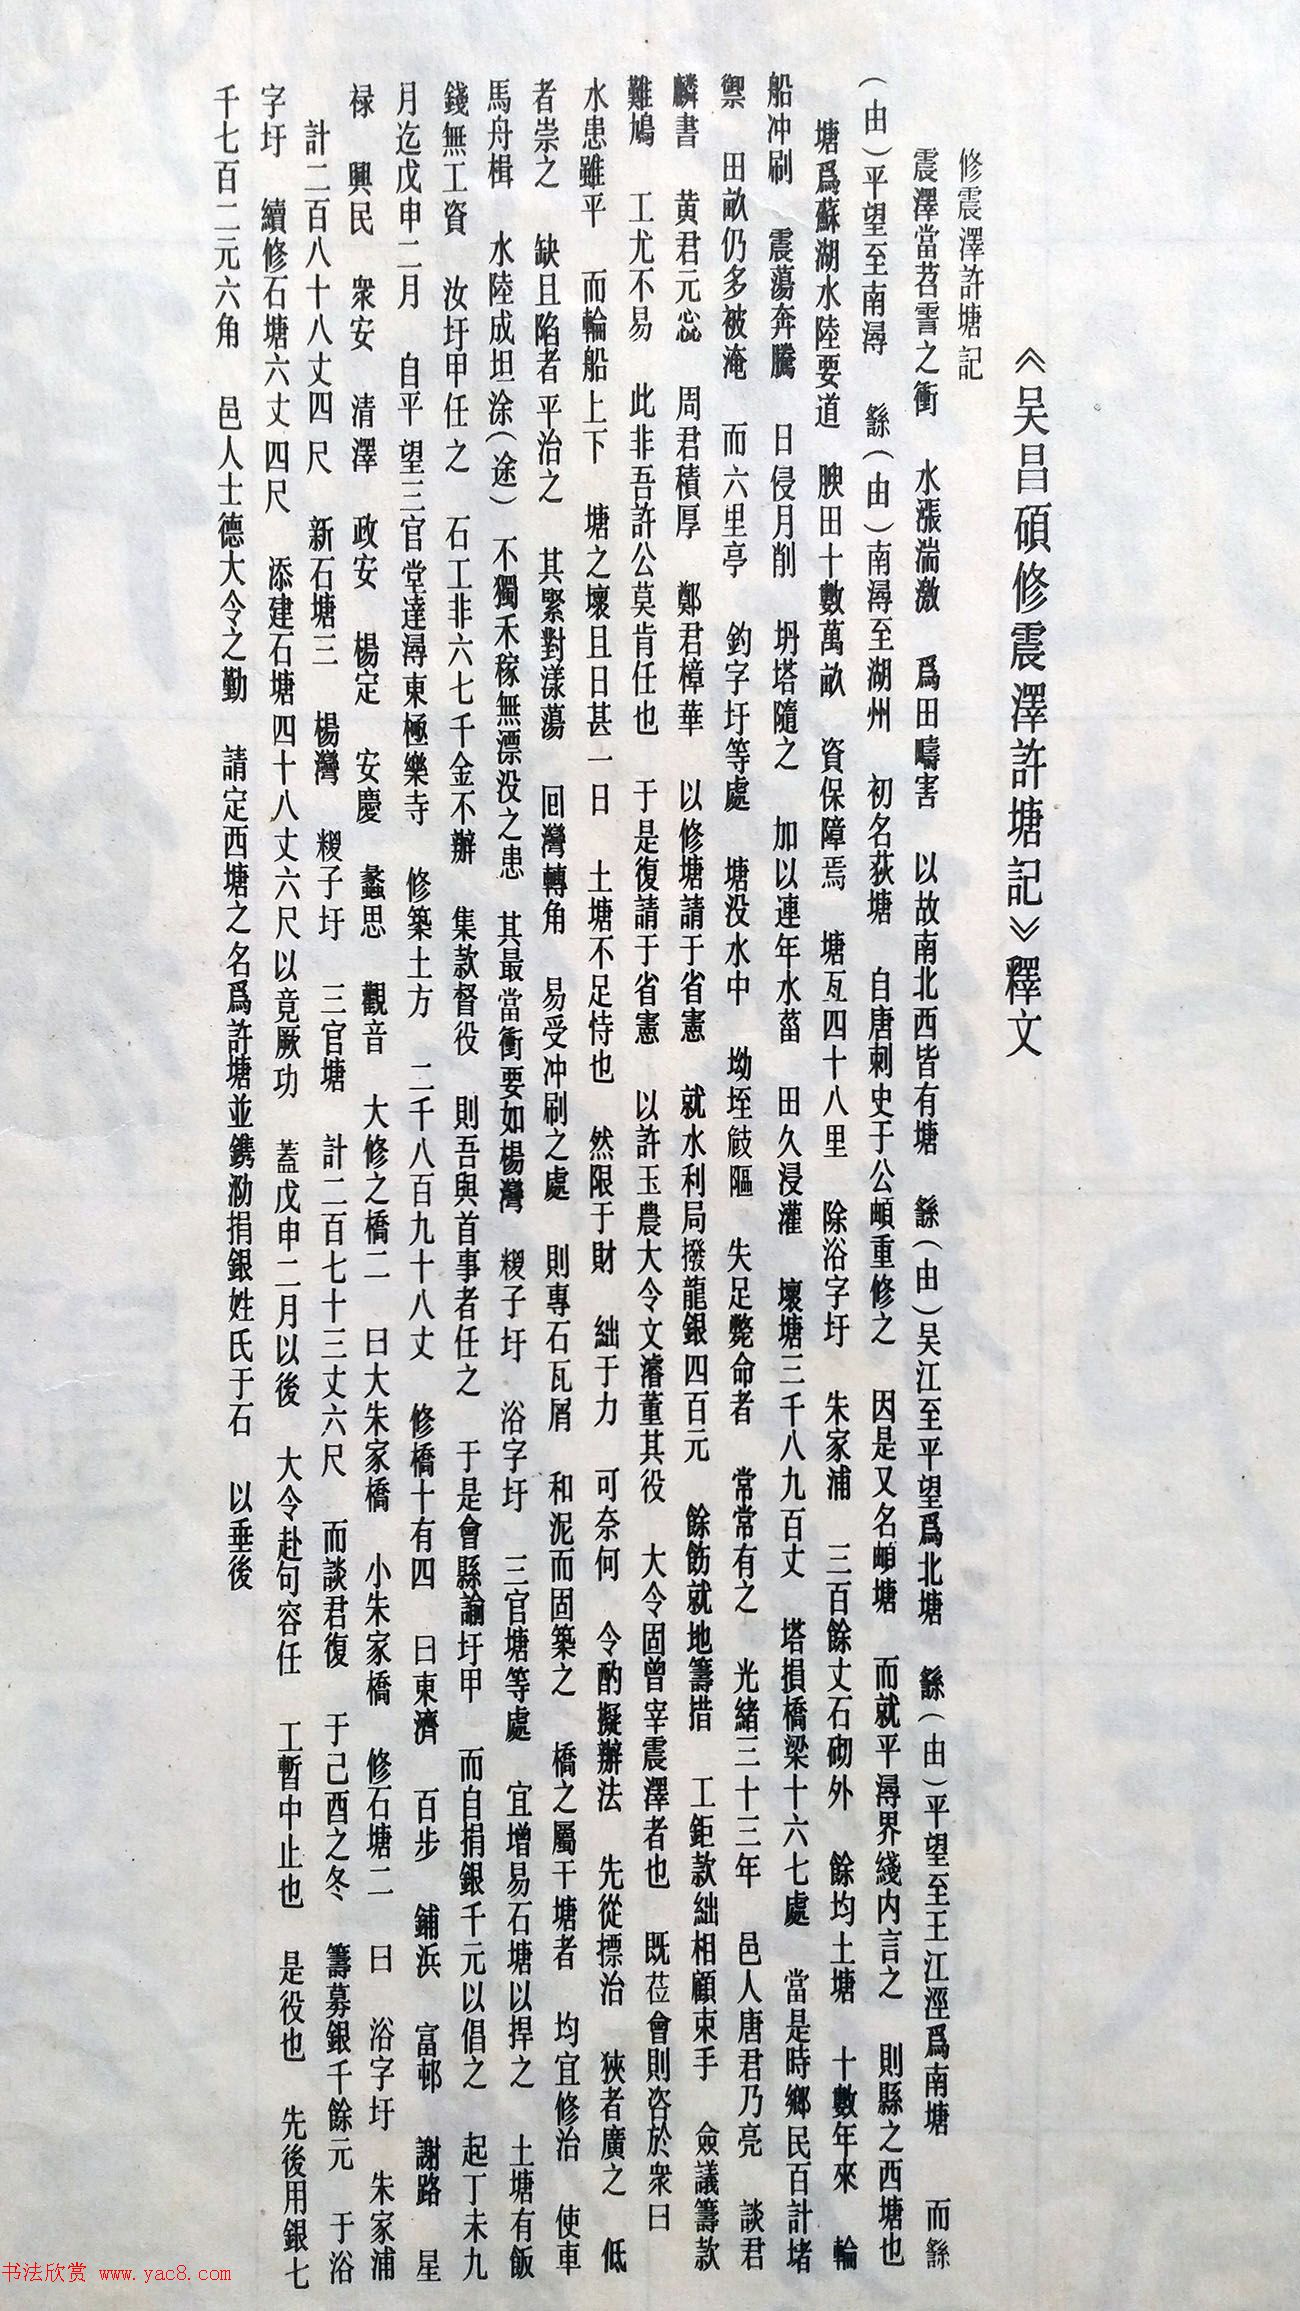 《吴昌碩修震澤許塘記》釋文
修震澤許塘記
震澤當苕霅之衝 水漲湍激 爲田疇害 以故南北西皆有塘 繇(由)吴江至平望爲北塘 繇(由)平望至王江涇爲南塘 而繇
(由)平望至南潯 繇(由)南潯至湖州 初名荻塘 自唐刺史于公頔重修之 因是又名頔塘 而就平潯界綫内言之 則縣之西塘也
塘爲蘇湖水陸要道 腴田十數萬畝 資保障焉 塘亙四十八里 除浴字圩 朱家浦 三百餘丈石砌外 餘均土塘 十數年來 輪
船冲刷 震蕩奔騰 日侵月削 坍塔隨之 加以連年水菑 田久浸灌 壞塘三千八九百丈 塔損橋梁十六七處 當是時鄉民百計堵
禦 田畝仍多被淹 而六里亭 釣字圩等處 塘没水中 坳垤敧嶇 失足斃命者 常常有之 光緒三十三年 邑人唐君乃亮 談君
麟書 黄君元蕊 周君積厚 鄭君樟華 以修塘請于省憲 就水利局撥龍銀四百元 餘飭就地籌措 工鉅款絀相顧束手 僉議籌款
難鳩 工尤不易 此非吾許公莫肯任也 于是復請于省憲 以許玉農大令文濬董其役 大令固曾宰震澤者也 既莅會則咨於衆曰
水患雖平 而輪船上下 塘之壞且日甚一日 土塘不足恃也 然限于財 絀于力 可奈何 令酌擬辦法 先從摽治 狹者廣之 低
者崇之 缺且陷者平治之 其緊對漾蕩 回灣轉角 易受冲刷之處 則專石瓦屑 和泥而固築之 橋之屬干塘者 均宜修治 使車
馬舟楫 水陸成坦涂(途) 不獨禾稼無漂没之患 其最當衝要如楊灣 糉子圩 浴字圩 三官塘等處 宜增易石塘以捍之 土塘有飯
錢無工資 汝圩甲任之 石工非六七千金不辦 集款督役 則吾與首事者任之 于是會縣諭圩甲 而自捐銀千元以倡之 起丁未九
月迄戊申二月 自平望三官堂達潯東極樂寺 修築土方 二千八百九十八丈 修橋十有四 曰東濟 百步 鋪浜 富邨 謝路 星
禄 興民 衆安 清澤 政安 楊定 安慶 螽思 觀音 大修之橋二 曰大朱家橋 小朱家橋 修石塘二 曰 浴字圩 朱家浦
計二百八十八丈四尺 新石塘三 楊灣 糉子圩 三官塘 計二百七十三丈六尺 而談君復 于己酉之冬 籌募銀千餘元 于浴
字圩 續修石塘六丈四尺 添建石塘四十八丈六尺以竟厥功 蓋戊申二月以後 大令赴句容任 工暫中止也 是役也 先後用銀七
千七百二元六角 邑人士德大令之勤 請定西塘之名爲許塘並鐫泐捐銀姓氏于石 以垂後
书法欣赏 www.yac8.com